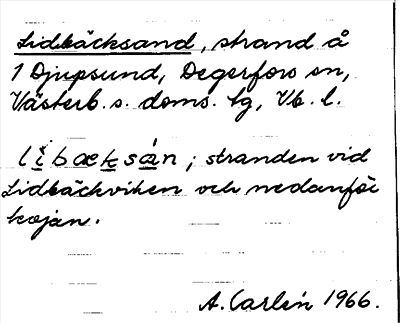 Lidbäcksand, strand å
1 Djupsund, Degerfors sn,
Västerb. s. doms. tg, Vb. l.
lìbæksán; stranden vid
Lidbäckviken och nedanför
kojan.
A. Carlén 1966.